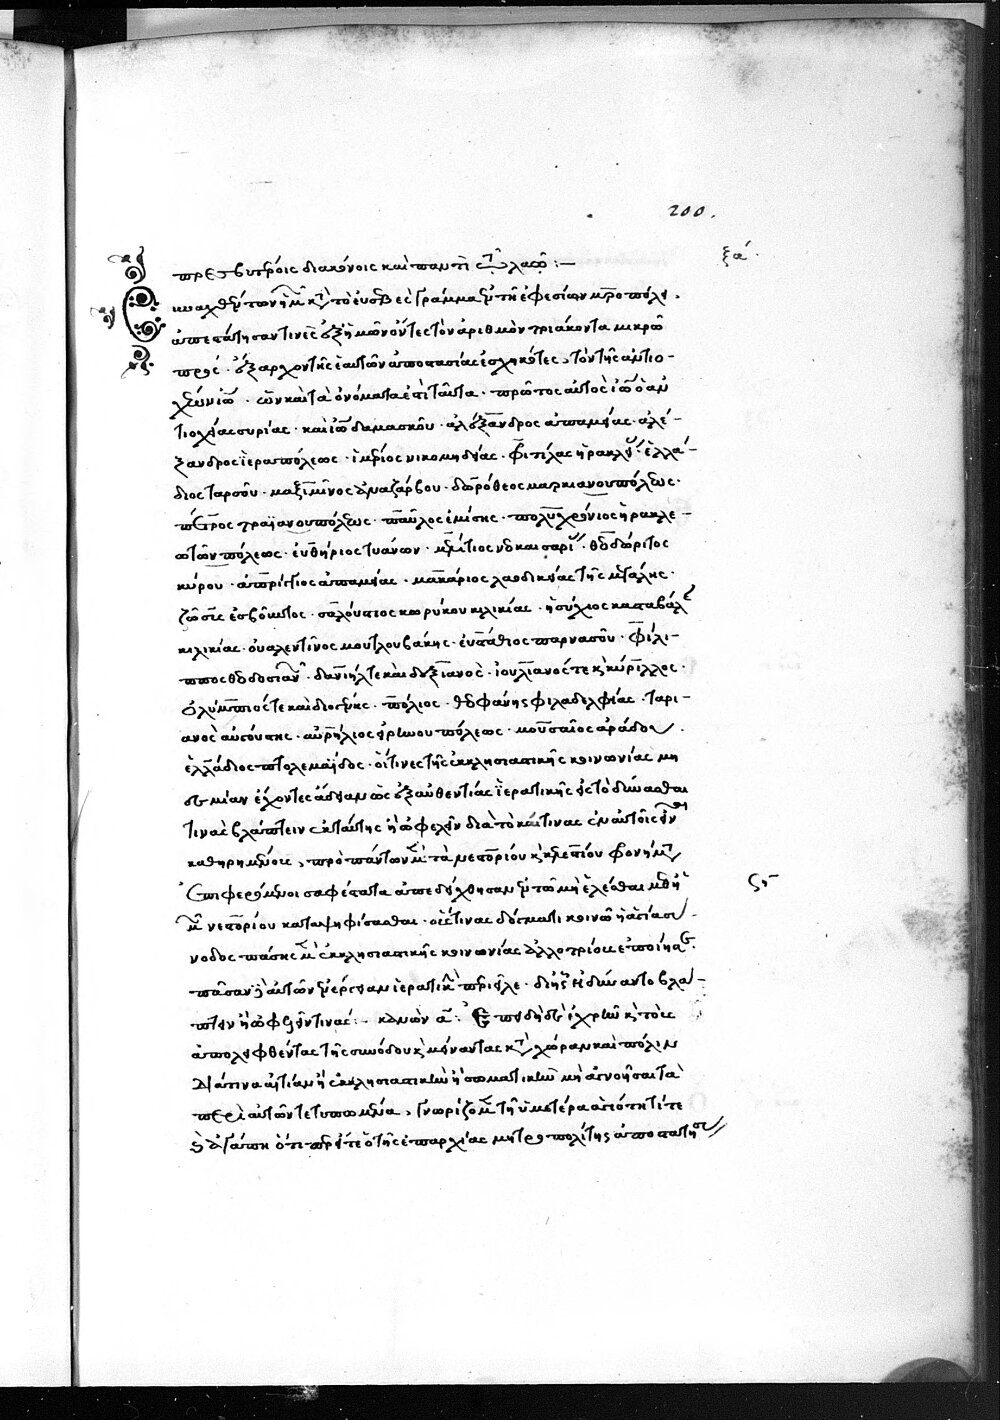 200.
ξα´.
πρεσβυτέροις διακόνοις καὶ παντὶ τῷ λαῷ :—
Συναχθέντων ἡμῶν κατὰ τὸ εὐσεβὲς γράμμα ἐν τῇ ἐφεσίων μητροπόλει.
ἀπεστάτησαν τινὲς ἐξ ἡμῶν ὄντες τὸν ἀριθμὸν τριάκοντα μικρῷ
πρός · ἔξαρχον τῆς ἑαυτῶν ἀποστασίας ἐσχηκότες, τὸν τῆς ἀντιο-
χέων ἰωάννην · ὧν καὶ τὰ ὀνόματα ἐστὶ ταῦτα · πρῶτος αὐτὸς ἰωάννης ὁ ἀν
τιοχείας συρίας · καὶ ἰωάννης δαμασκοῦ · ἀλέξανδρος ἀπαμείας · ἀλέ-
ξανδρος ἱεραπόλεως · ἱμέριος νικομηδείας · φριτίλας ἡρακλείας · ἑλλά-
διος ταρσοῦ · μαξιμῖνος ἀναζάρβου · δωρόθεος μαρκιανουπόλεως ·
πέτρος τραϊανουπόλεως · παῦλος ἐμίσης · πολυχρόνιος ἡρακλε-
ωτῶν πόλεως · εὐθήριος τυάνων · μελέτιος νεοκαισαρίας · θεοδώριτος
κύρου · ἀπρίγγιος ἀπαμείας · μακάριος λαοδικείας τῆς μεγάλης ·
ζῶσυς ἐσβοῦντος · σαλούστιος κωρύκου κιλικίας · ἡσύχιος κασταβάλης
κιλικίας · οὐαλεντῖνος μουτλουβάκης · εὐστάθιος παρνασοῦ · φίλι-
ππος θεοδοσιανῶν · δανιήλ τε καὶ δεξιανὸς · ἰουλιανός τε καὶ κύριλλος ·
ὀλύμπιός τε καὶ διογένης · πόλιος · θεοφάνης φιλαδελφίας · ταρι-
ανὸς αὐγούστης · αὐρήλιος εἰρινουπόλεως · μουσαῖος ἀράδου ·
ἑλλάδιος πτολεμαΐδος · οἵτινες τῆς ἐκκλησιαστικῆς κοινωνίας μη
δεμίαν ἔχοντες ἄδειαν ὡς ἐξ αὐθεντίας ἱερατικῆς εἰς τὸ δύνασθαι
τινὰς βλάπτειν ἐκ ταύτης ἢ ὠφελεῖν διὰ τὸ καί τινας ἐν αὐτοῖς εἶναι
καθηρημένους, πρὸ πάντων μὲν τὰ νεστορίου καὶ κελεστίου φρονήματα
ἐπιφερόμενοι σαφέστατα ἀπεδείχθησαν ἐκ τοῦ μὴ ἑλέσθαι μεθ' ἡ
ϛʹ
μῶν νεστορίου καταψηφίσασθαι · οὕς τινας δόγματι κοινῷ ἡ ἁγία σύ
νοδος πάσης μὲν ἐκκλησιαστικῆς κοινωνίας ἀλλοτρίους ἐποίησεν ·
πᾶσαν δὲ αὐτῶν ἐνέργειαν ἱερατικὴν περιεῖλε · δι' ἧς ἠδύναντο βλά-
πτειν ἢ ὠφελεῖν τινας :· κανὼν αʹ · Ἐπειδὴ δὲ ἐχρῆν καὶ τοὺς
ἀπολειφθέντας τῆς συνόδου καὶ μείναντας κατὰ χώραν καὶ πόλιν
διά τινα αἰτίαν ἢ ἐκκλησιαστικὴν ἢ σωματικὴν μὴ ἀγνοῆσαι τὰ
περὶ αὐτῶν τετυπωμένα, γνωρίζομεν τῇ ὑμετέρα ἁγιότητί τε
καὶ ἀγάπη ὅτι περ εἴ τε ὁ τῆς ἐπαρχίας μητροπολίτης ἀποστατήσας